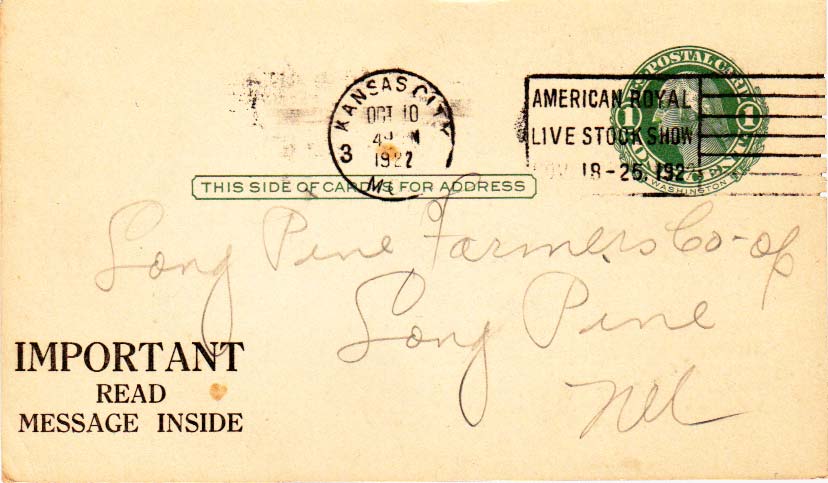 POSTAL CARD
1 1
WASHINGTON
KANSAS CITY
OCT 10
3
192
MO
AMERICAN ROYAL
LIVE STOCK SHOW
18-25, 192
THIS SIDE OF CARD IS FOR ADDRESS
Long Pine Farmers Co-op
Long Pine
Neb
IMPORTANT
READ
MESSAGE INSIDE